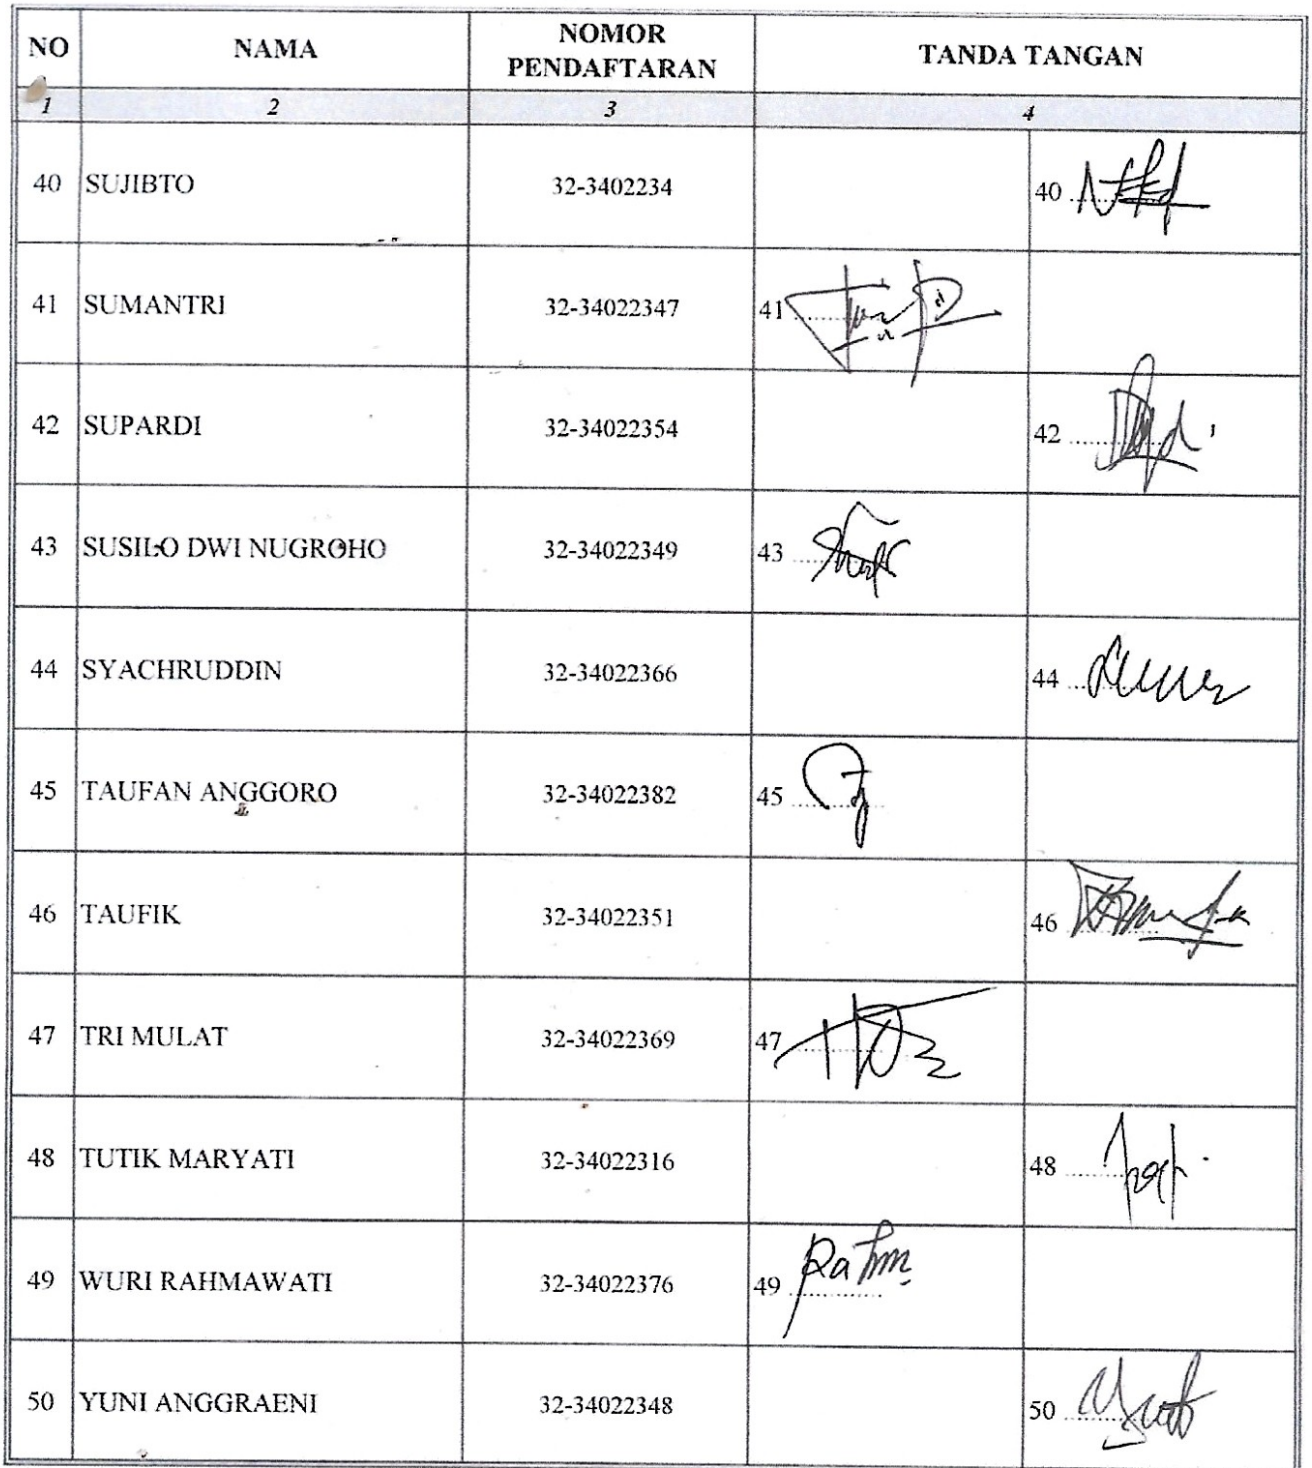 NO NAMA NOMOR PENDAFTARAN TANDA TANGAN
1 2 3 4
40 SUJIBTO 32-3402234 40
41 SUMANTRI 32-34022347 41
42 SUPARDI 32-34022354 42
43 SUSILO DWI NUGROHO 32-34022349 43
44 SYACHRUDDIN 32-34022366 44
45 TAUFAN ANGGORO 32-34022382 45
46 TAUFIK 32-34022351 46
47 TRI MULAT 32-34022369 47
48 TUTIK MARYATI 32-34022316 48
49 WURI RAHMAWATI 32-34022376 49 Rahm
50 YUNI ANGGRAENI 32-34022348 50